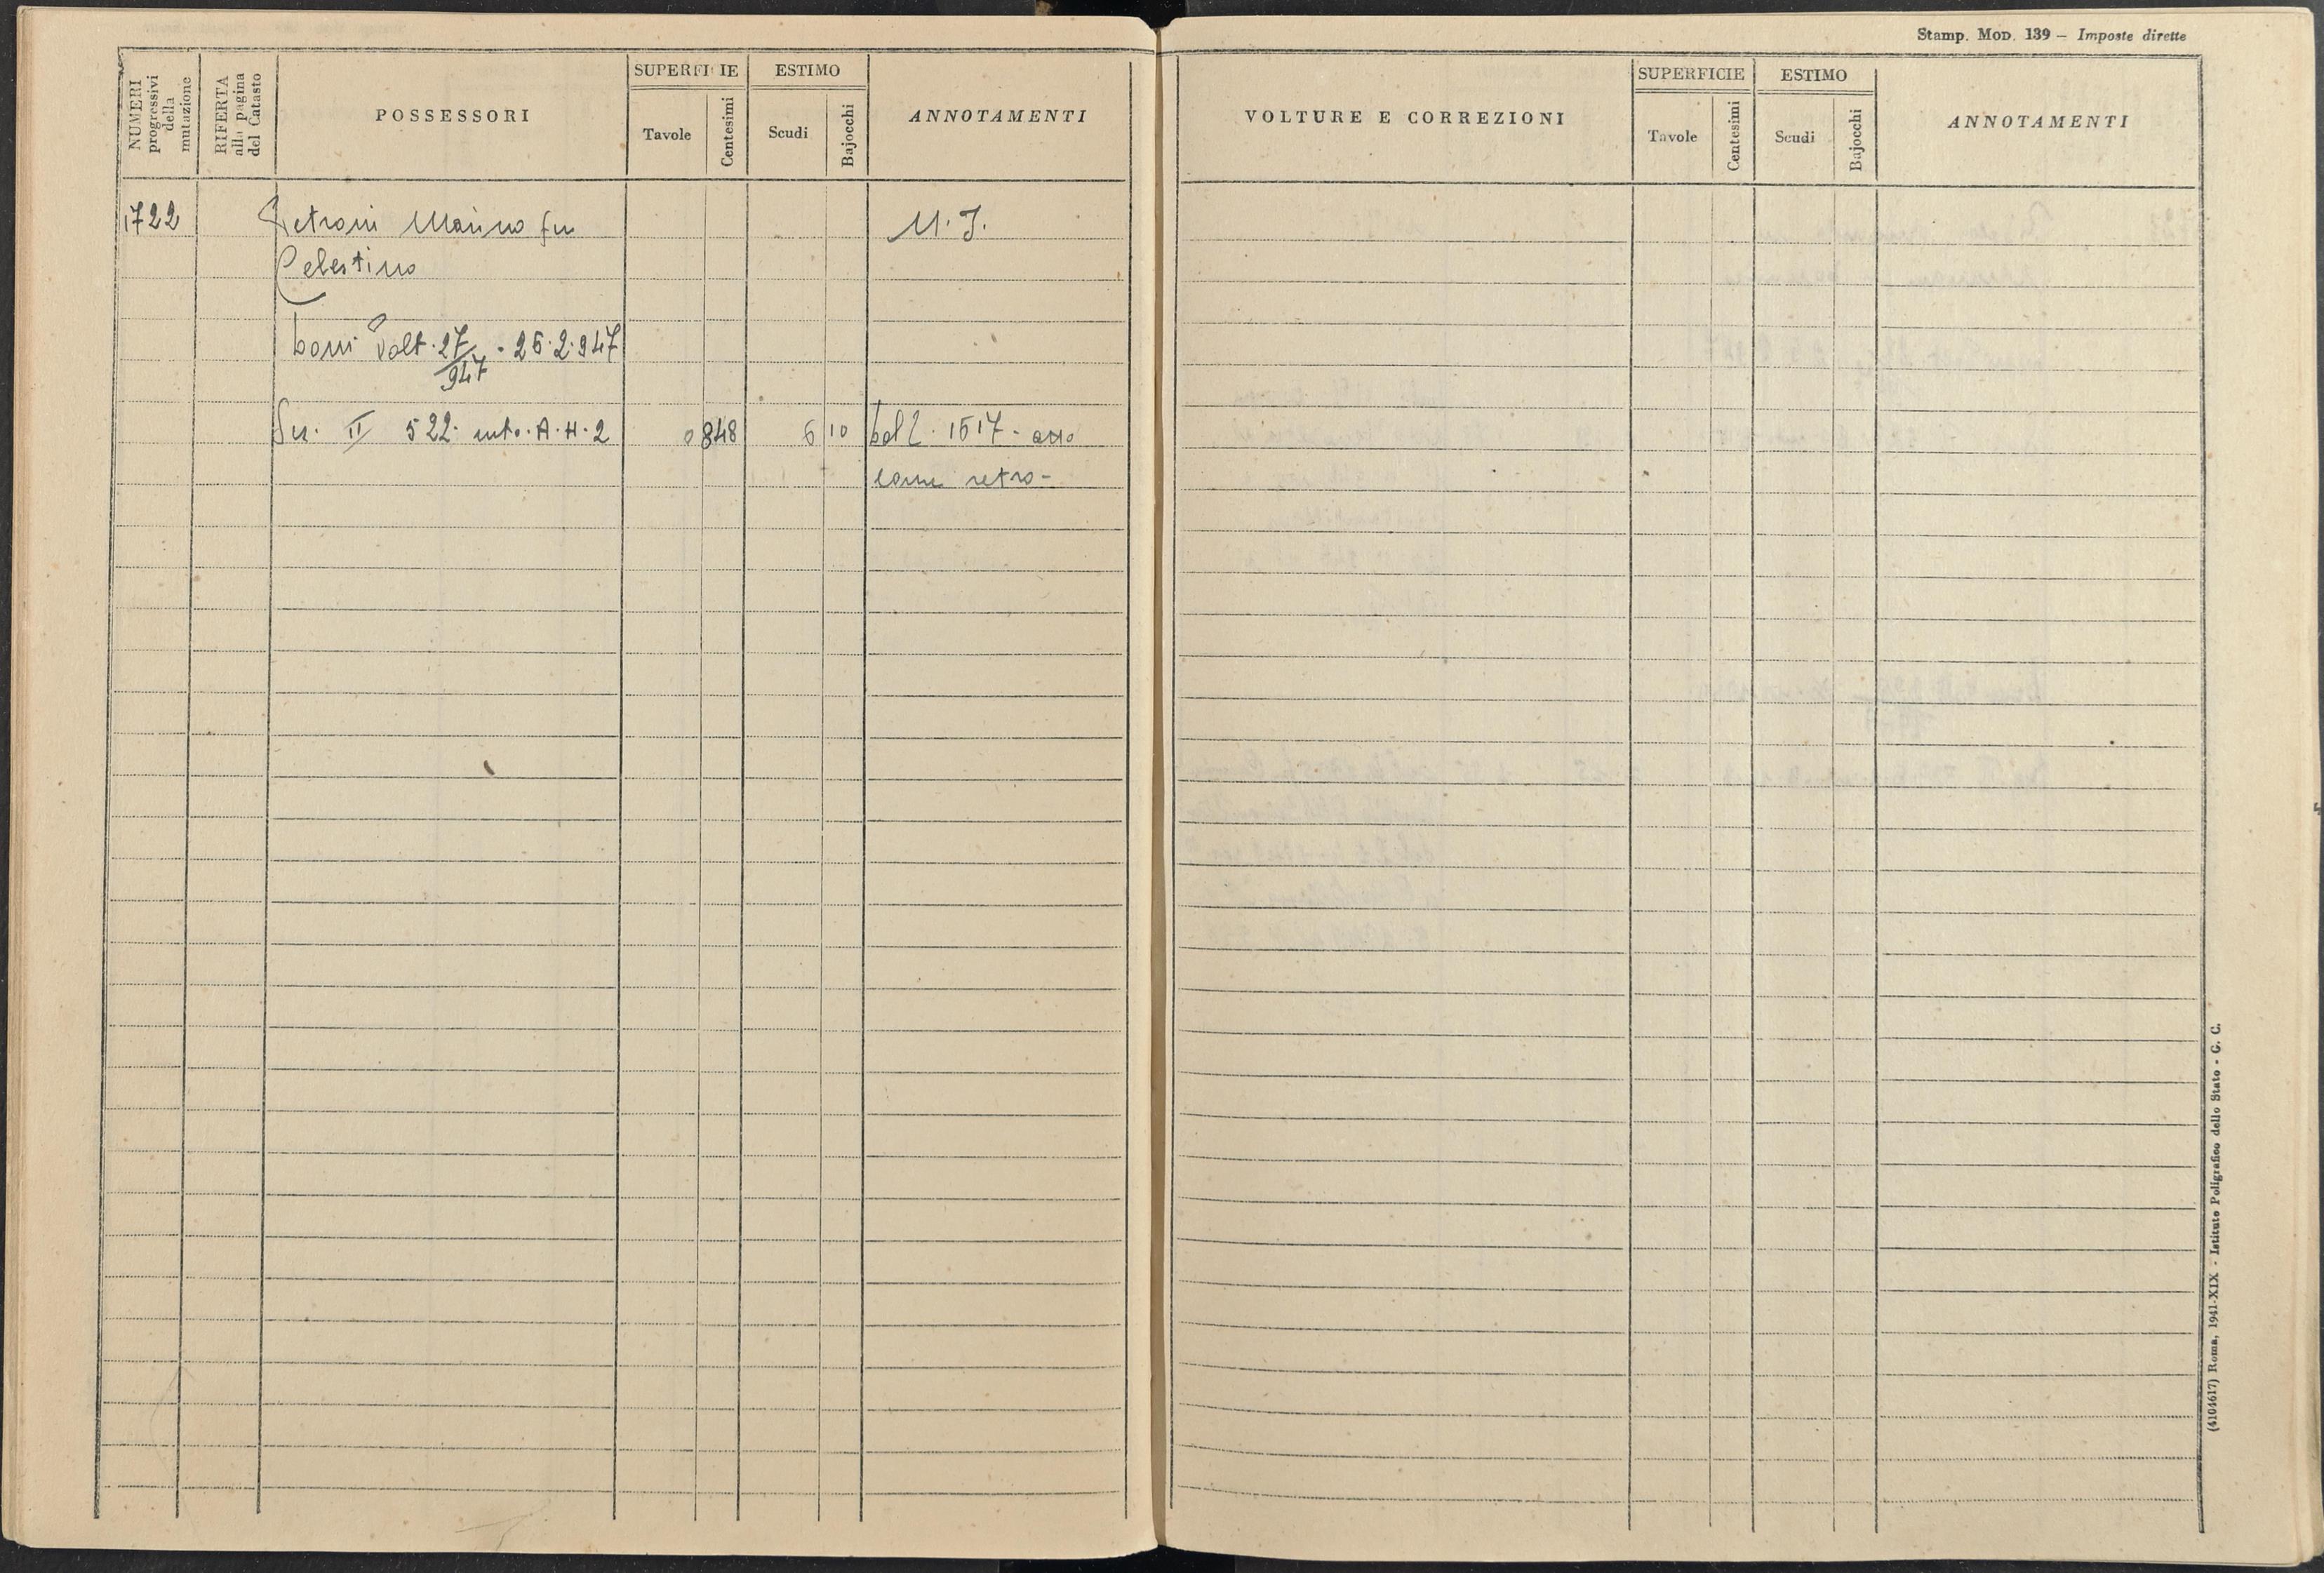 Stamp. Mod. 139 — Imposte dirette
NUMERI progressivi della mutazione
RIFERTA alla pagina del Catasto
POSSESSORI
SUPERFICIE
Tavole
Centesimi
ESTIMO
Scudi
Bajocchi
ANNOTAMENTI
1722
Petroni Marino fu
M. I.
Celestino
Volt. 27/947 - 26.2.947
II 522 A.H.2 0 848 6 10 1517
come retro-
VOLTURE E CORREZIONI
SUPERFICIE
Tavole
Centesimi
ESTIMO
Scudi
Bajocchi
ANNOTAMENTI
(4104617) Roma, 1941-XIX - Istituto Poligrafico dello Stato - G. C.